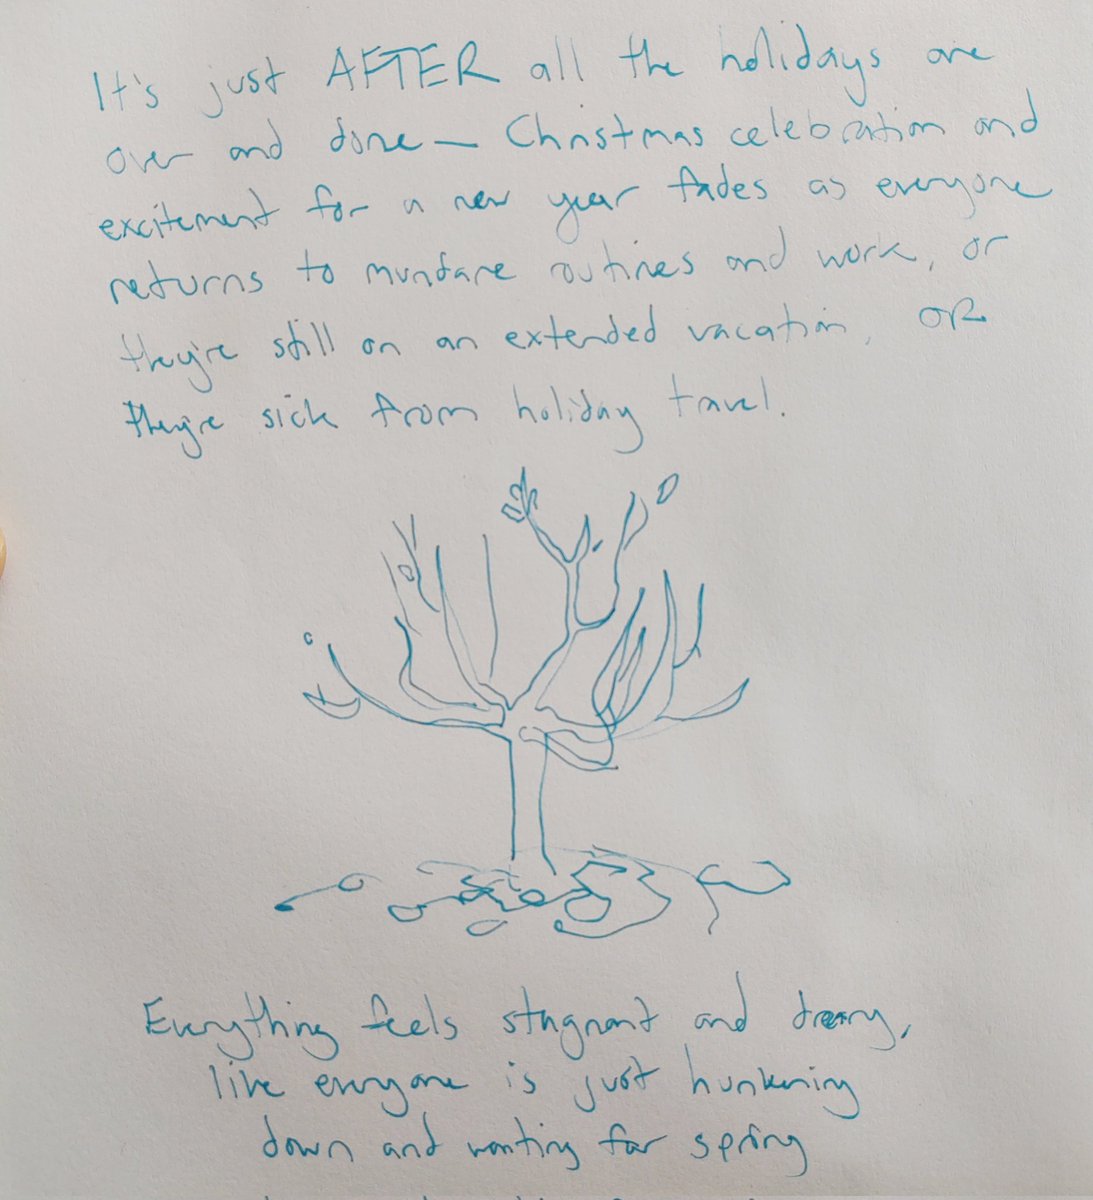 It's just AFTER all the holidays are
over and done — Christmas celebration and
excitement for a new year fades as everyone
returns to mundane routines and work, or
they're still on an extended vacation, OR
they're sick from holiday travel.
Everything feels stagnant and dreary,
like everyone is just hunkering
down and waiting for spring